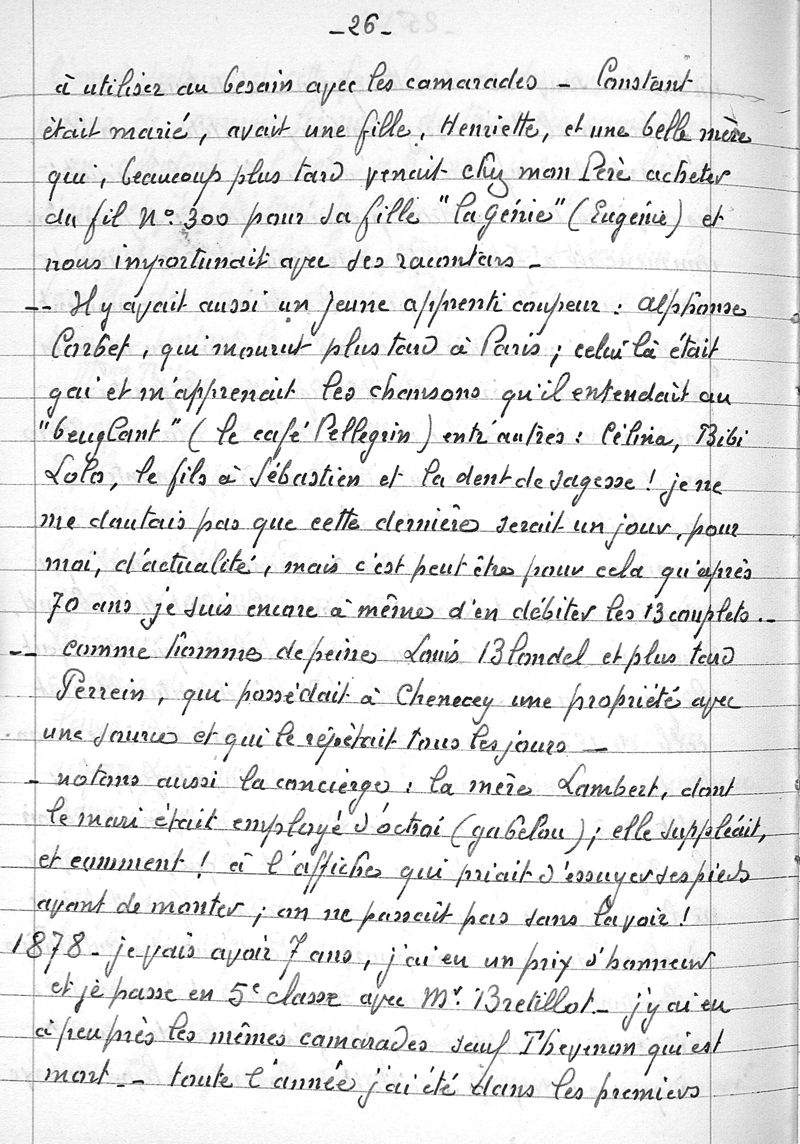 -26-
à utiliser au besoin avec les camarades - Constant
était marié, avait une fille, Henriette, et une belle mère
qui, beaucoup plus tard venait chez mon Père acheter
du fil N° 300 pour sa fille "la génie" (Eugénie) et
nous importunait avec ses racontars -
-- Il y avait aussi un jeune apprenti coupeur : Alphonse
Corbet, qui mourut plus tard à Paris ; celui là était
gai et m'apprenait les chansons qu'il entendait au
"beuglant" ( le café Pellegrin ) entr'autres : Célina, Bibi
Lolo, le fils à Sébastien et la dent de sagesse ! je ne
me doutais pas que cette dernière serait un jour, pour
moi, d'actualité, mais c'est peut être pour cela qu'après
70 ans je suis encore à même d'en débiter les 13 couplets --
-- comme homme de peine Louis Blondel et plus tard
Perrein, qui possédait à Chenecey une propriété avec
une source et qui le répétait tous les jours -
- notons aussi la concierge : la mère Lambert, dont
le mari était employé d'octroi (gabelou) ; elle suppléait,
et comment ! à l'affiche qui priait d'essuyer ses pieds
avant de monter ; on ne passait pas sans la voir !
1878 - je vais avoir 7 ans, j'ai eu un prix d'honneur
et je passe en 5e classe avec Mr. Bretillot - j'y ai eu
à peu près les mêmes camarades sauf Thevenon qui est
mort -- toute l'année j'ai été dans les premiers